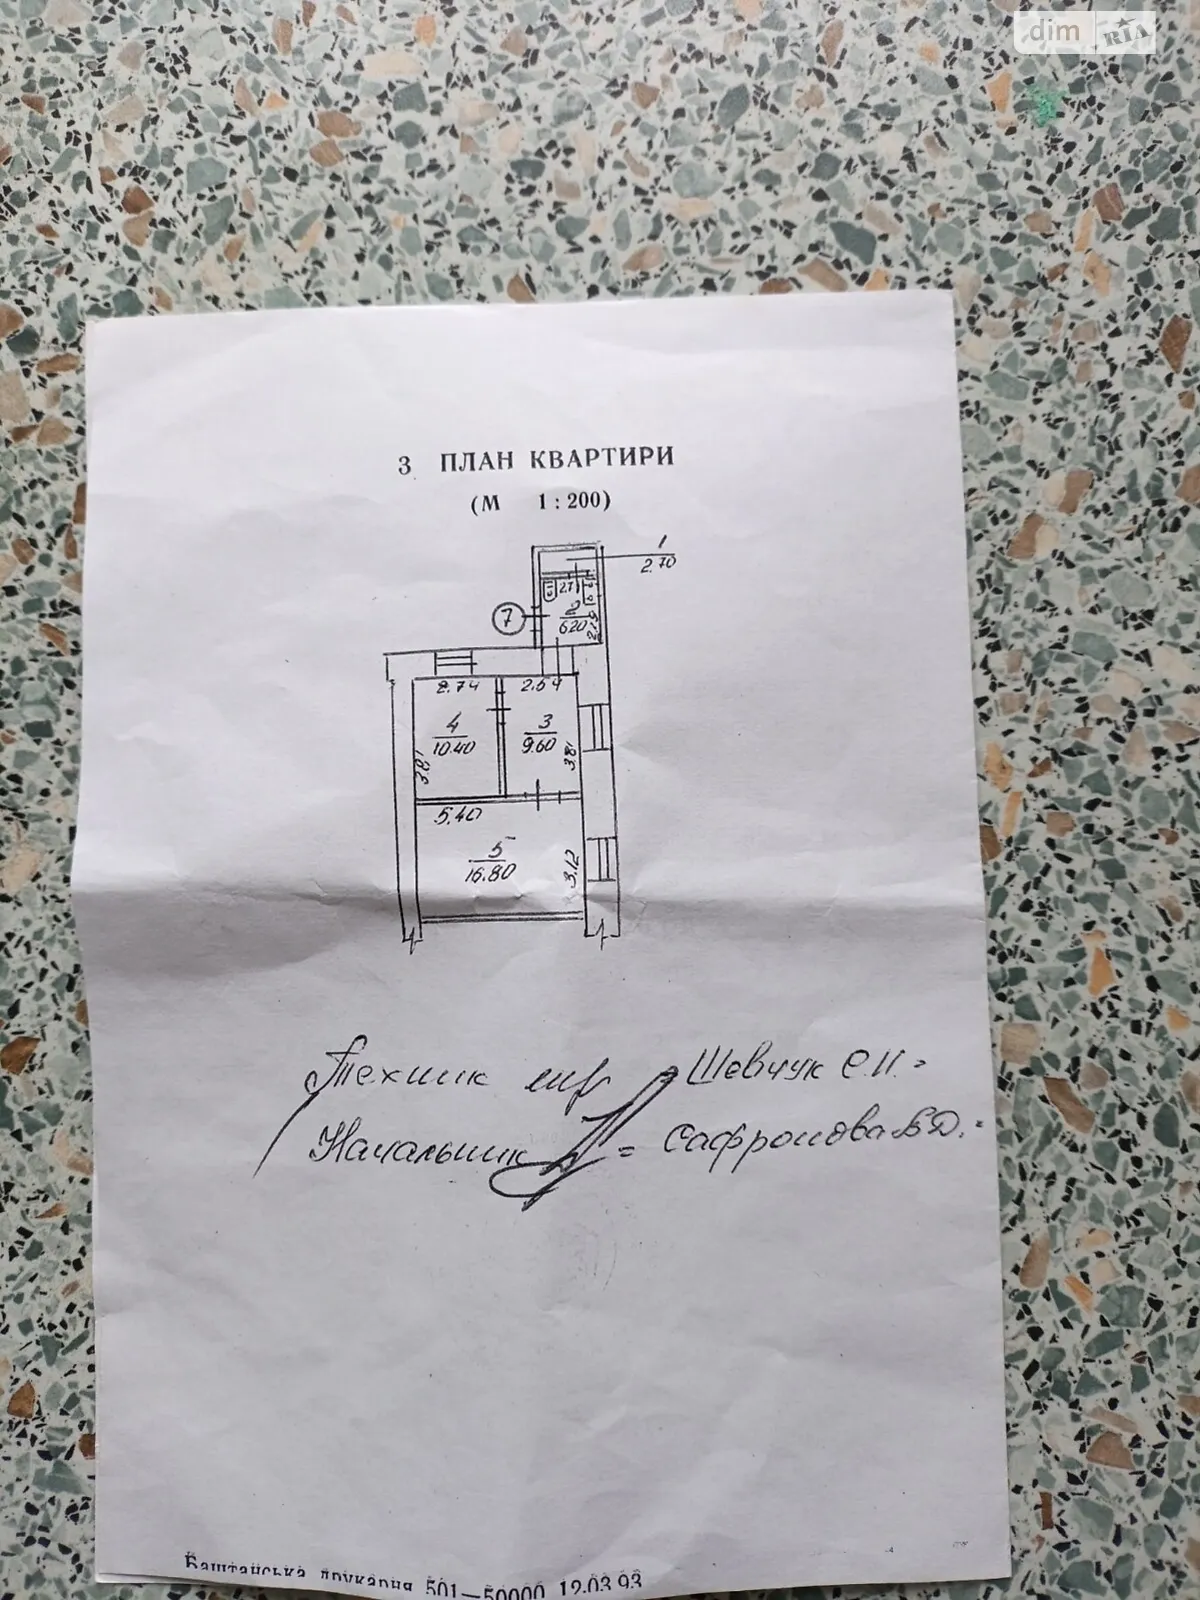 dim RIA
3 ПЛАН КВАРТИРИ
(М 1 : 200)
1
2.70
2.7
2
6.20
2.15
7
2.74
2.54
4
10.40
3
9.60
3.81
3.81
5.40
5
16.80
3.12
Техник Шевчук Е.И.
Начальник = Сафронова
Баштанська друкарня 501—50000 12.03.93